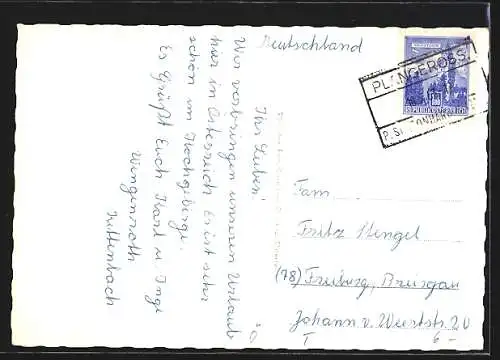 Deutschland
Ihr Lieben!
Wir verbringen unseren Urlaub
hier in Österreich. Es ist sehr
schön im Hochgebirge.
Es Grüßt Euch Karl u. Inge
Wingenroth
Kettenbach
PLANGEROSS
REPUBLIK ÖSTERREICH
P. ST. LEONHARD
Fam
Fritz Stengel
(78) Freiburg, Breisgau
Johann v. Weertstr. 20
T 6-